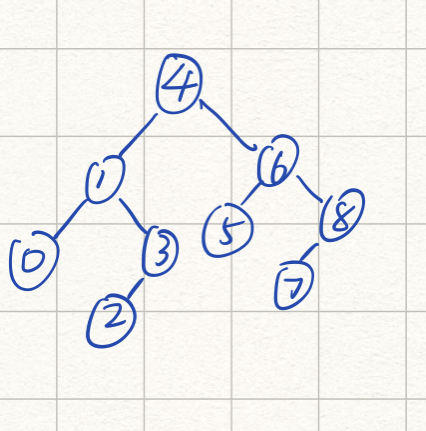 4
1 6
0 3 5 8
2 7